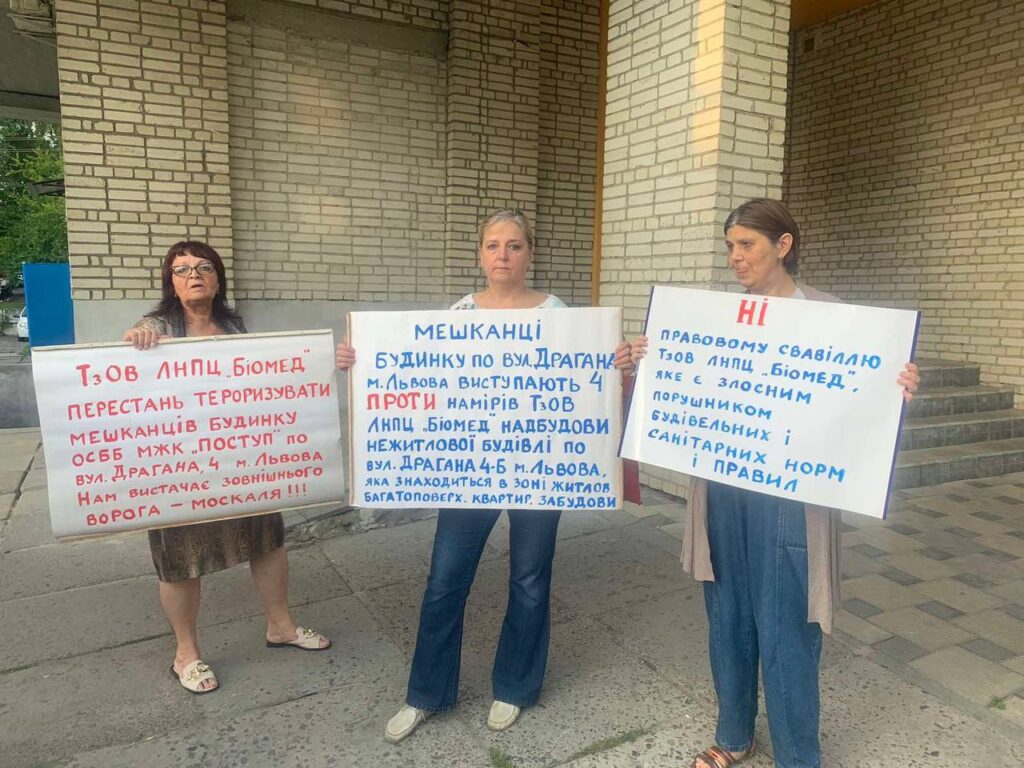 ТзОВ ЛНПЦ „Біомед"
ПЕРЕСТАНЬ ТЕРОРИЗУВАТИ
МЕШКАНЦІВ БУДИНКУ
ОСББ МЖК „ПОСТУП" ПО
ВУЛ. ДРАГАНА, 4 М. ЛЬВОВА
НАМ ВИСТАЧАЄ ЗОВНІШНЬОГО
ВОРОГА – МОСКАЛЯ!!!
МЕШКАНЦІ
БУДИНКУ ПО ВУЛ. ДРАГАНА
М. ЛЬВОВА ВИСТУПАЮТЬ 4
ПРОТИ НАМІРІВ ТзОВ
ЛНПЦ „Біомед" НАДБУДОВИ
НЕЖИТЛОВОЇ БУДІВЛІ ПО
ВУЛ. ДРАГАНА 4-Б М. ЛЬВОВА,
ЯКА ЗНАХОДИТЬСЯ В ЗОНІ ЖИТЛОВ.
БАГАТОПОВЕРХ. КВАРТИР. ЗАБУДОВИ
НІ
ПРАВОВОМУ СВАВІЛЛЮ
ТзОВ ЛНПЦ „Біомед",
ЯКЕ Є ЗЛОСНИМ
ПОРУШНИКОМ
БУДІВЕЛЬНИХ І
САНІТАРНИХ НОРМ
І ПРАВИЛ